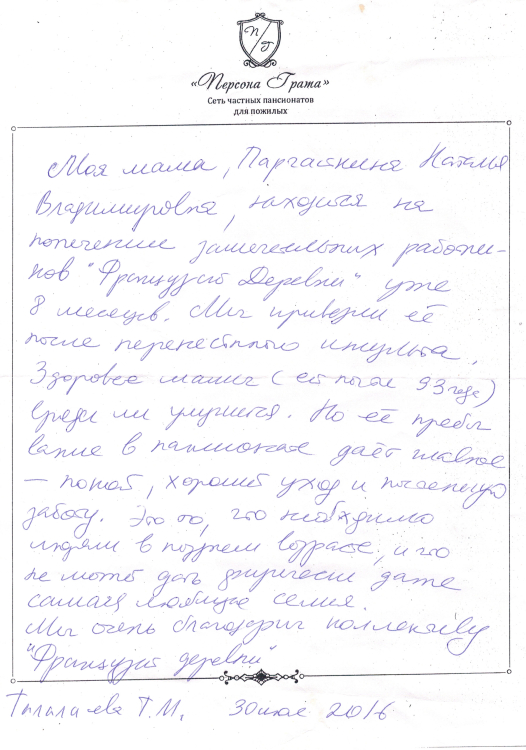 П Г
«Персона Грата»
Сеть частных пансионатов
для пожилых
Моя мама, Наталья
Владимировна, находится на
попечении замечательных работни-
ков "Французской Деревни" уже
8 месяцев. Мы привезли её
после перенесённого инсульта.
Здоровье мамы (ей почти 93 года)
вряд ли улучшится. Но её пребы
вание в пансионате даёт главное
— покой, хороший уход и постоянную
заботу. Это то, что необходимо
людям в позднем возрасте, и что
не может дать физически даже
самая любящая семья.
Мы очень благодарны коллективу
"Французской деревни"
Т.М. 30 мая 2016